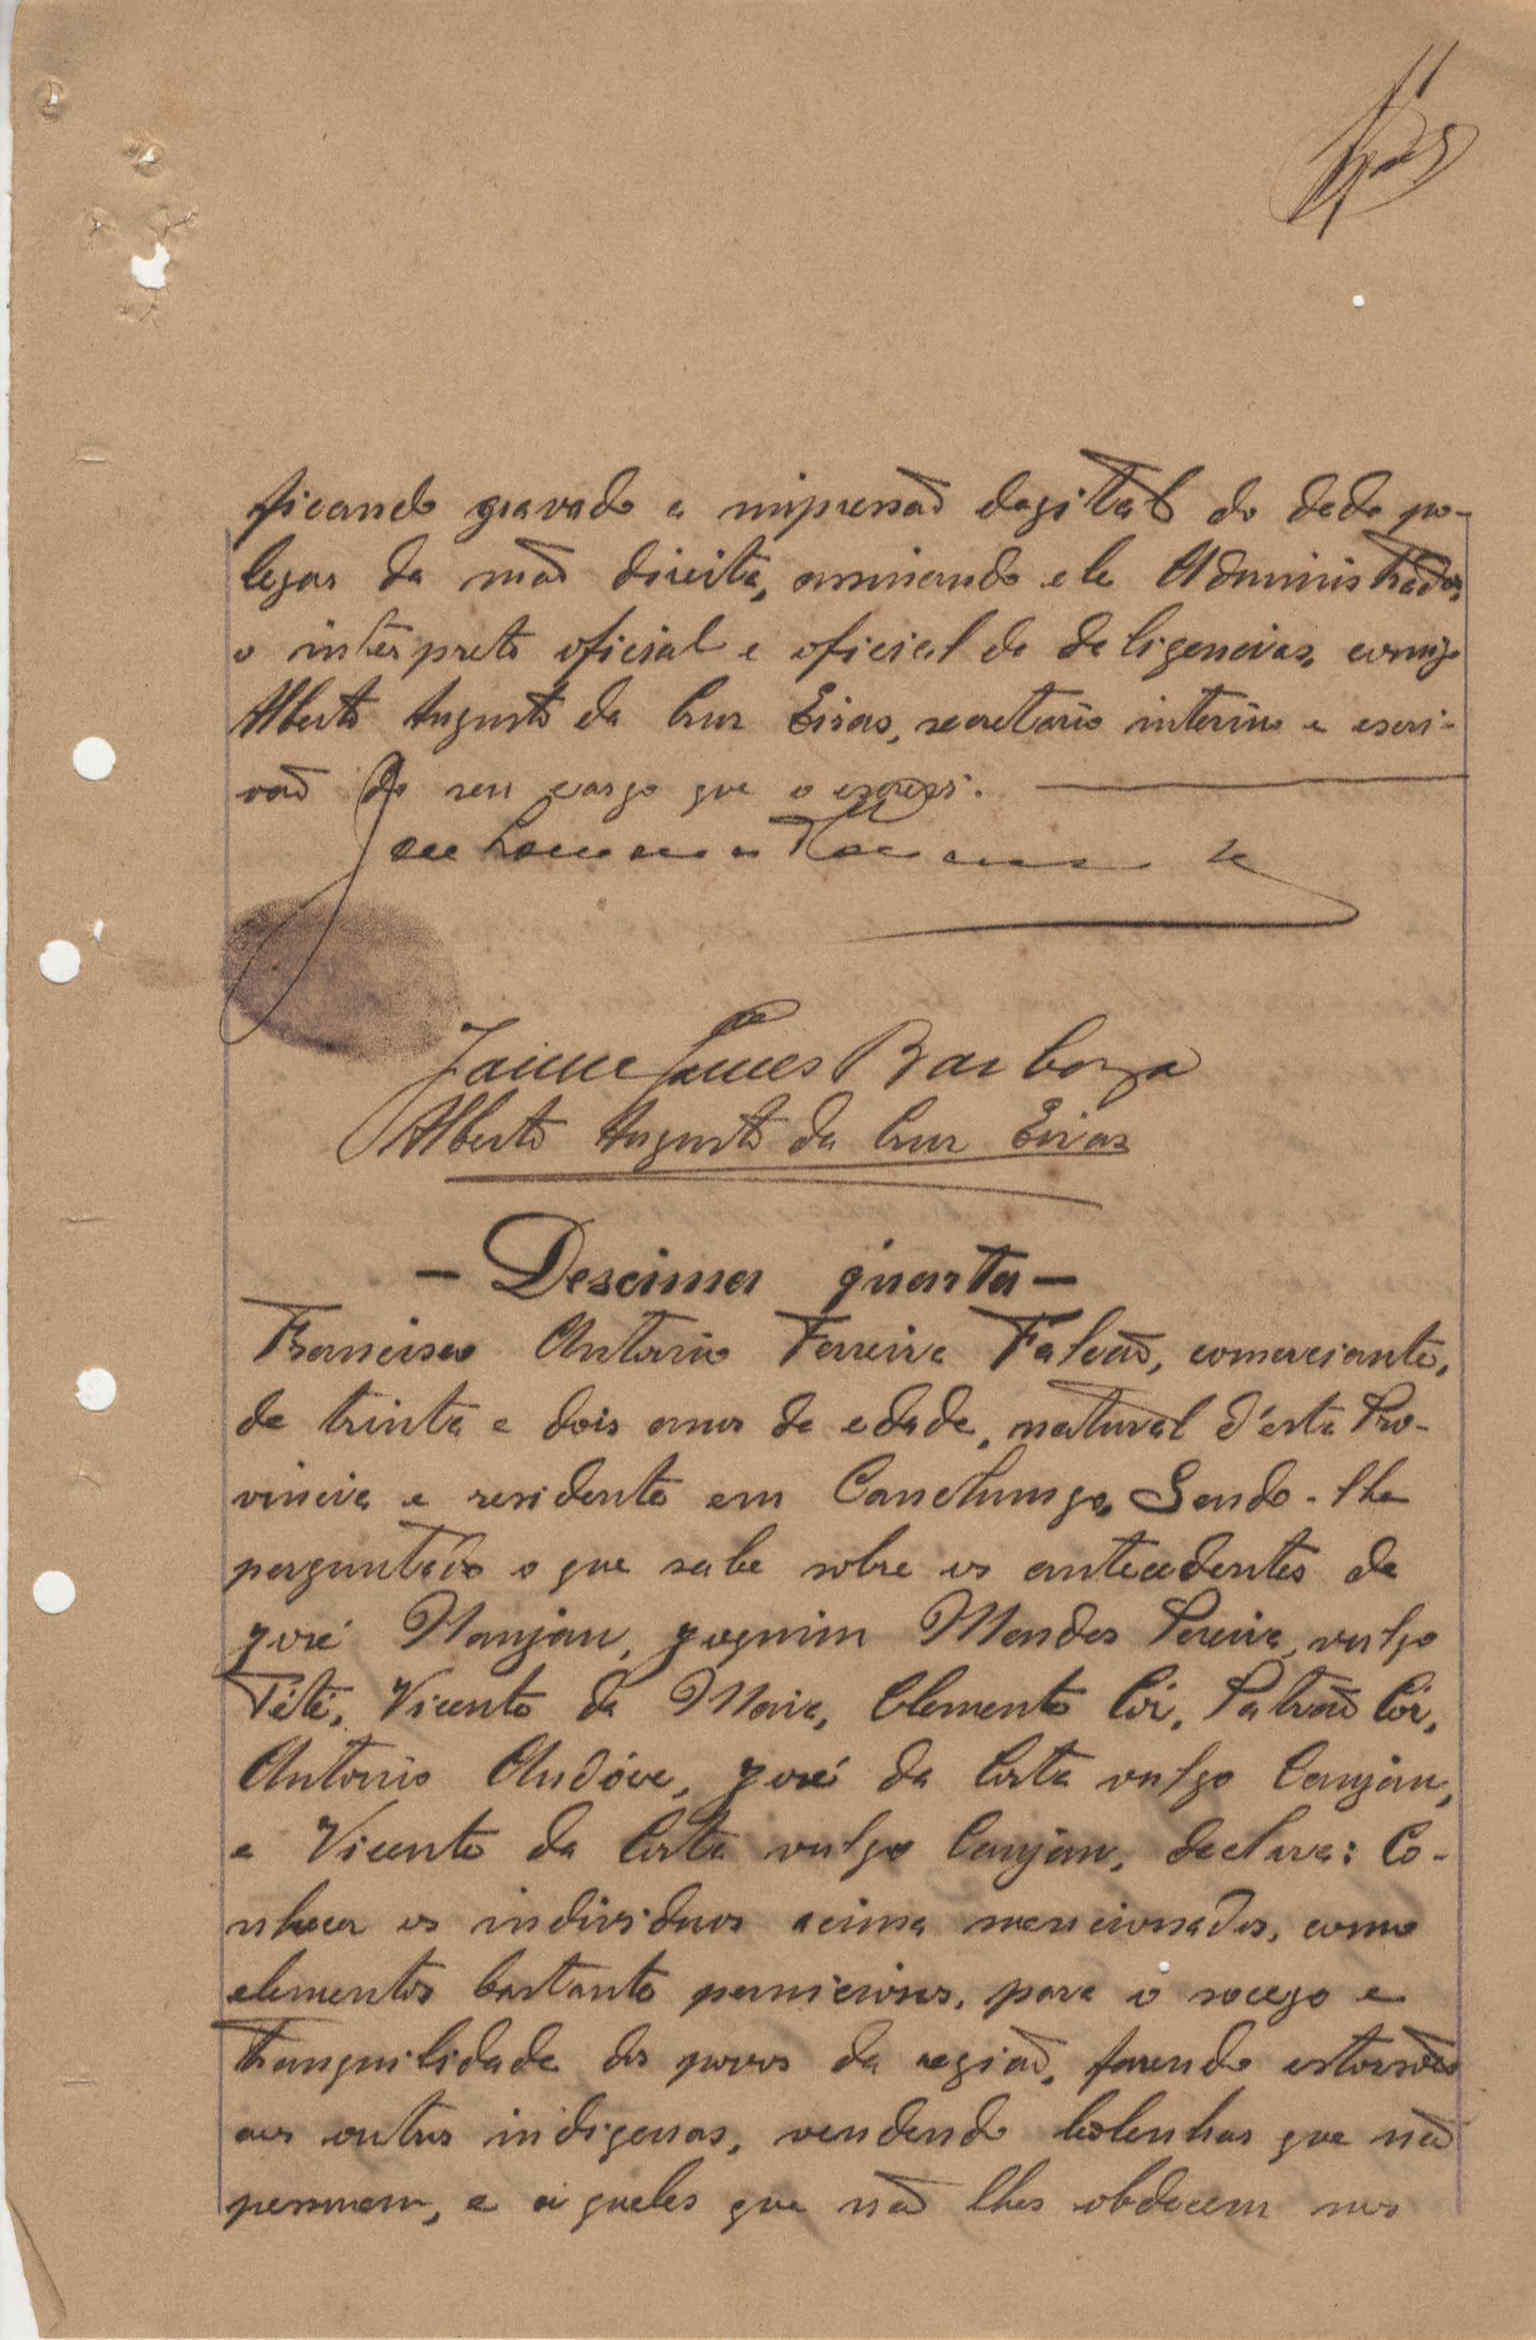 ficando gravado a impressão degital do dedo po-
legar da mão direita, assinando ele Administrador,
o intérprete oficial e oficial de deligencias, comigo
Alberto Augusto da Cruz Eiras, secretario interino e escri-
vão do seu cargo que o escrevi.
Jaime Gomes Barboza
Alberto Augusto da Cruz Eiras
— Descima quarta —
Francisco Antonio Ferreira Falcão, comerciante,
de trinta e dois anos de edade, natural d'esta Pro-
vincia e residente em Canchungo. Sendo-lhe
perguntado o que sabe sobre os antecedentes de
José Nanjau, Joquim Mendes Pereira, vulgo
Tété, Vicente da Maia, Clemente Có, Patrão Có,
Antonio Andóve, José da Costa vulgo Canjan,
e Vicente da Costa vulgo Canjan, declara: Co-
nhecer os individuos acima mencionados, como
elementos bastante perniciosos, para o socego e
tranquilidade dos povos da região, fazendo estorsões
aos outros indigenas, vendendo bolenhas que não
possuem, e áqueles que não lhes obdecem nos